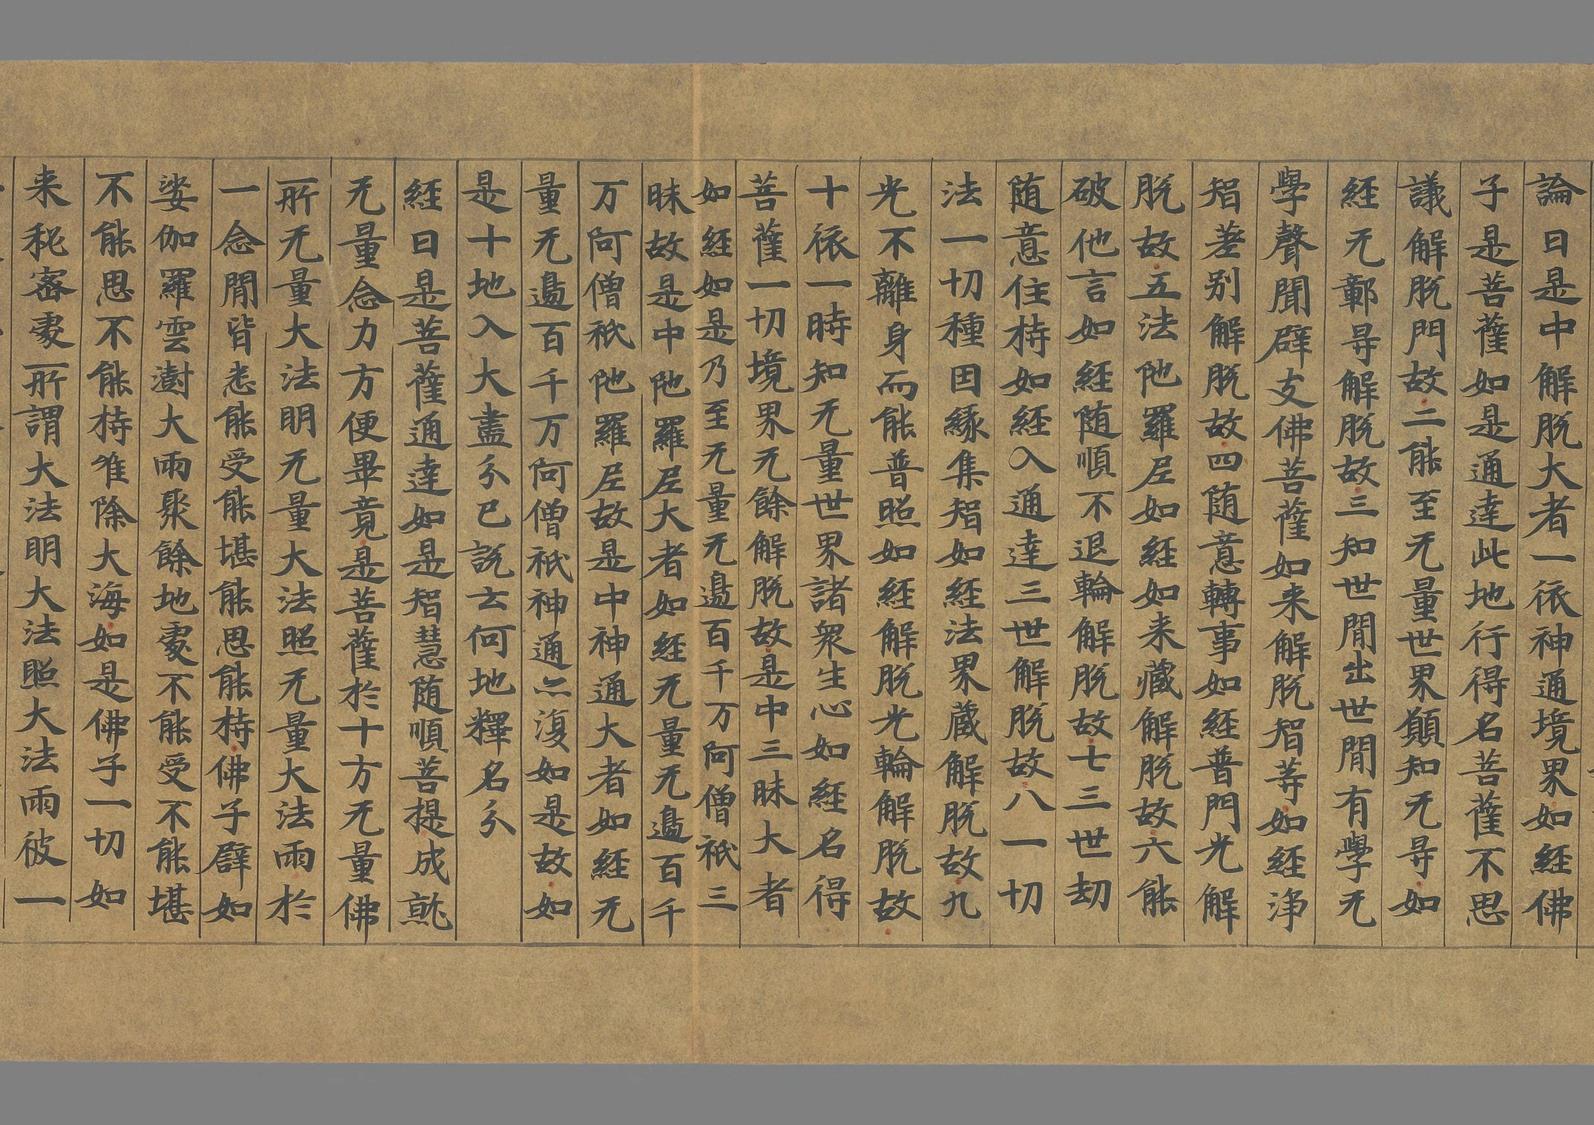 論曰是中解脱大者一依神通境界如經佛
子是菩薩如是通達此地行得名菩薩不思
議解脱門故二能至无量世界願知无㝵如
經无鄣㝵解脱故三知世閒出世閒有學无
學聲聞辟支佛菩薩如来解脱智等如經淨
智差别解脱故四随意轉事如經普門光解
脱故五法陁羅尼如經如来藏解脱故六能
破他言如經随順不退輪解脱故七三世劫
随意住持如經入通達三世解脱故八一切
法一切種因緣集智如經法界藏解脱故九
光不離身而能普照如經解脱光輪解脱故
十依一時知无量世界諸衆生心如經名得
菩薩一切境界无餘解脱故是中三昧大者
如經如是乃至无量无邊百千万阿僧祇三
昧故是中陁羅尼大者如經无量无邊百千
万阿僧祇陁羅尼故是中神通大者如經无
量无邊百千万阿僧祇神通亦復如是故如
是十地入大盡分已説云何地釋名分
經曰是菩薩通達如是智慧随順菩提成就
无量念力方便畢竟是菩薩於十方无量佛
所无量大法明无量大法照无量大法雨於
一念閒皆悉能受能堪能思能持佛子譬如
娑伽羅雲澍大雨聚餘地處不能受不能堪
不能思不能持唯除大海如是佛子一切如
来秘密處所謂大法明大法照大法雨彼一